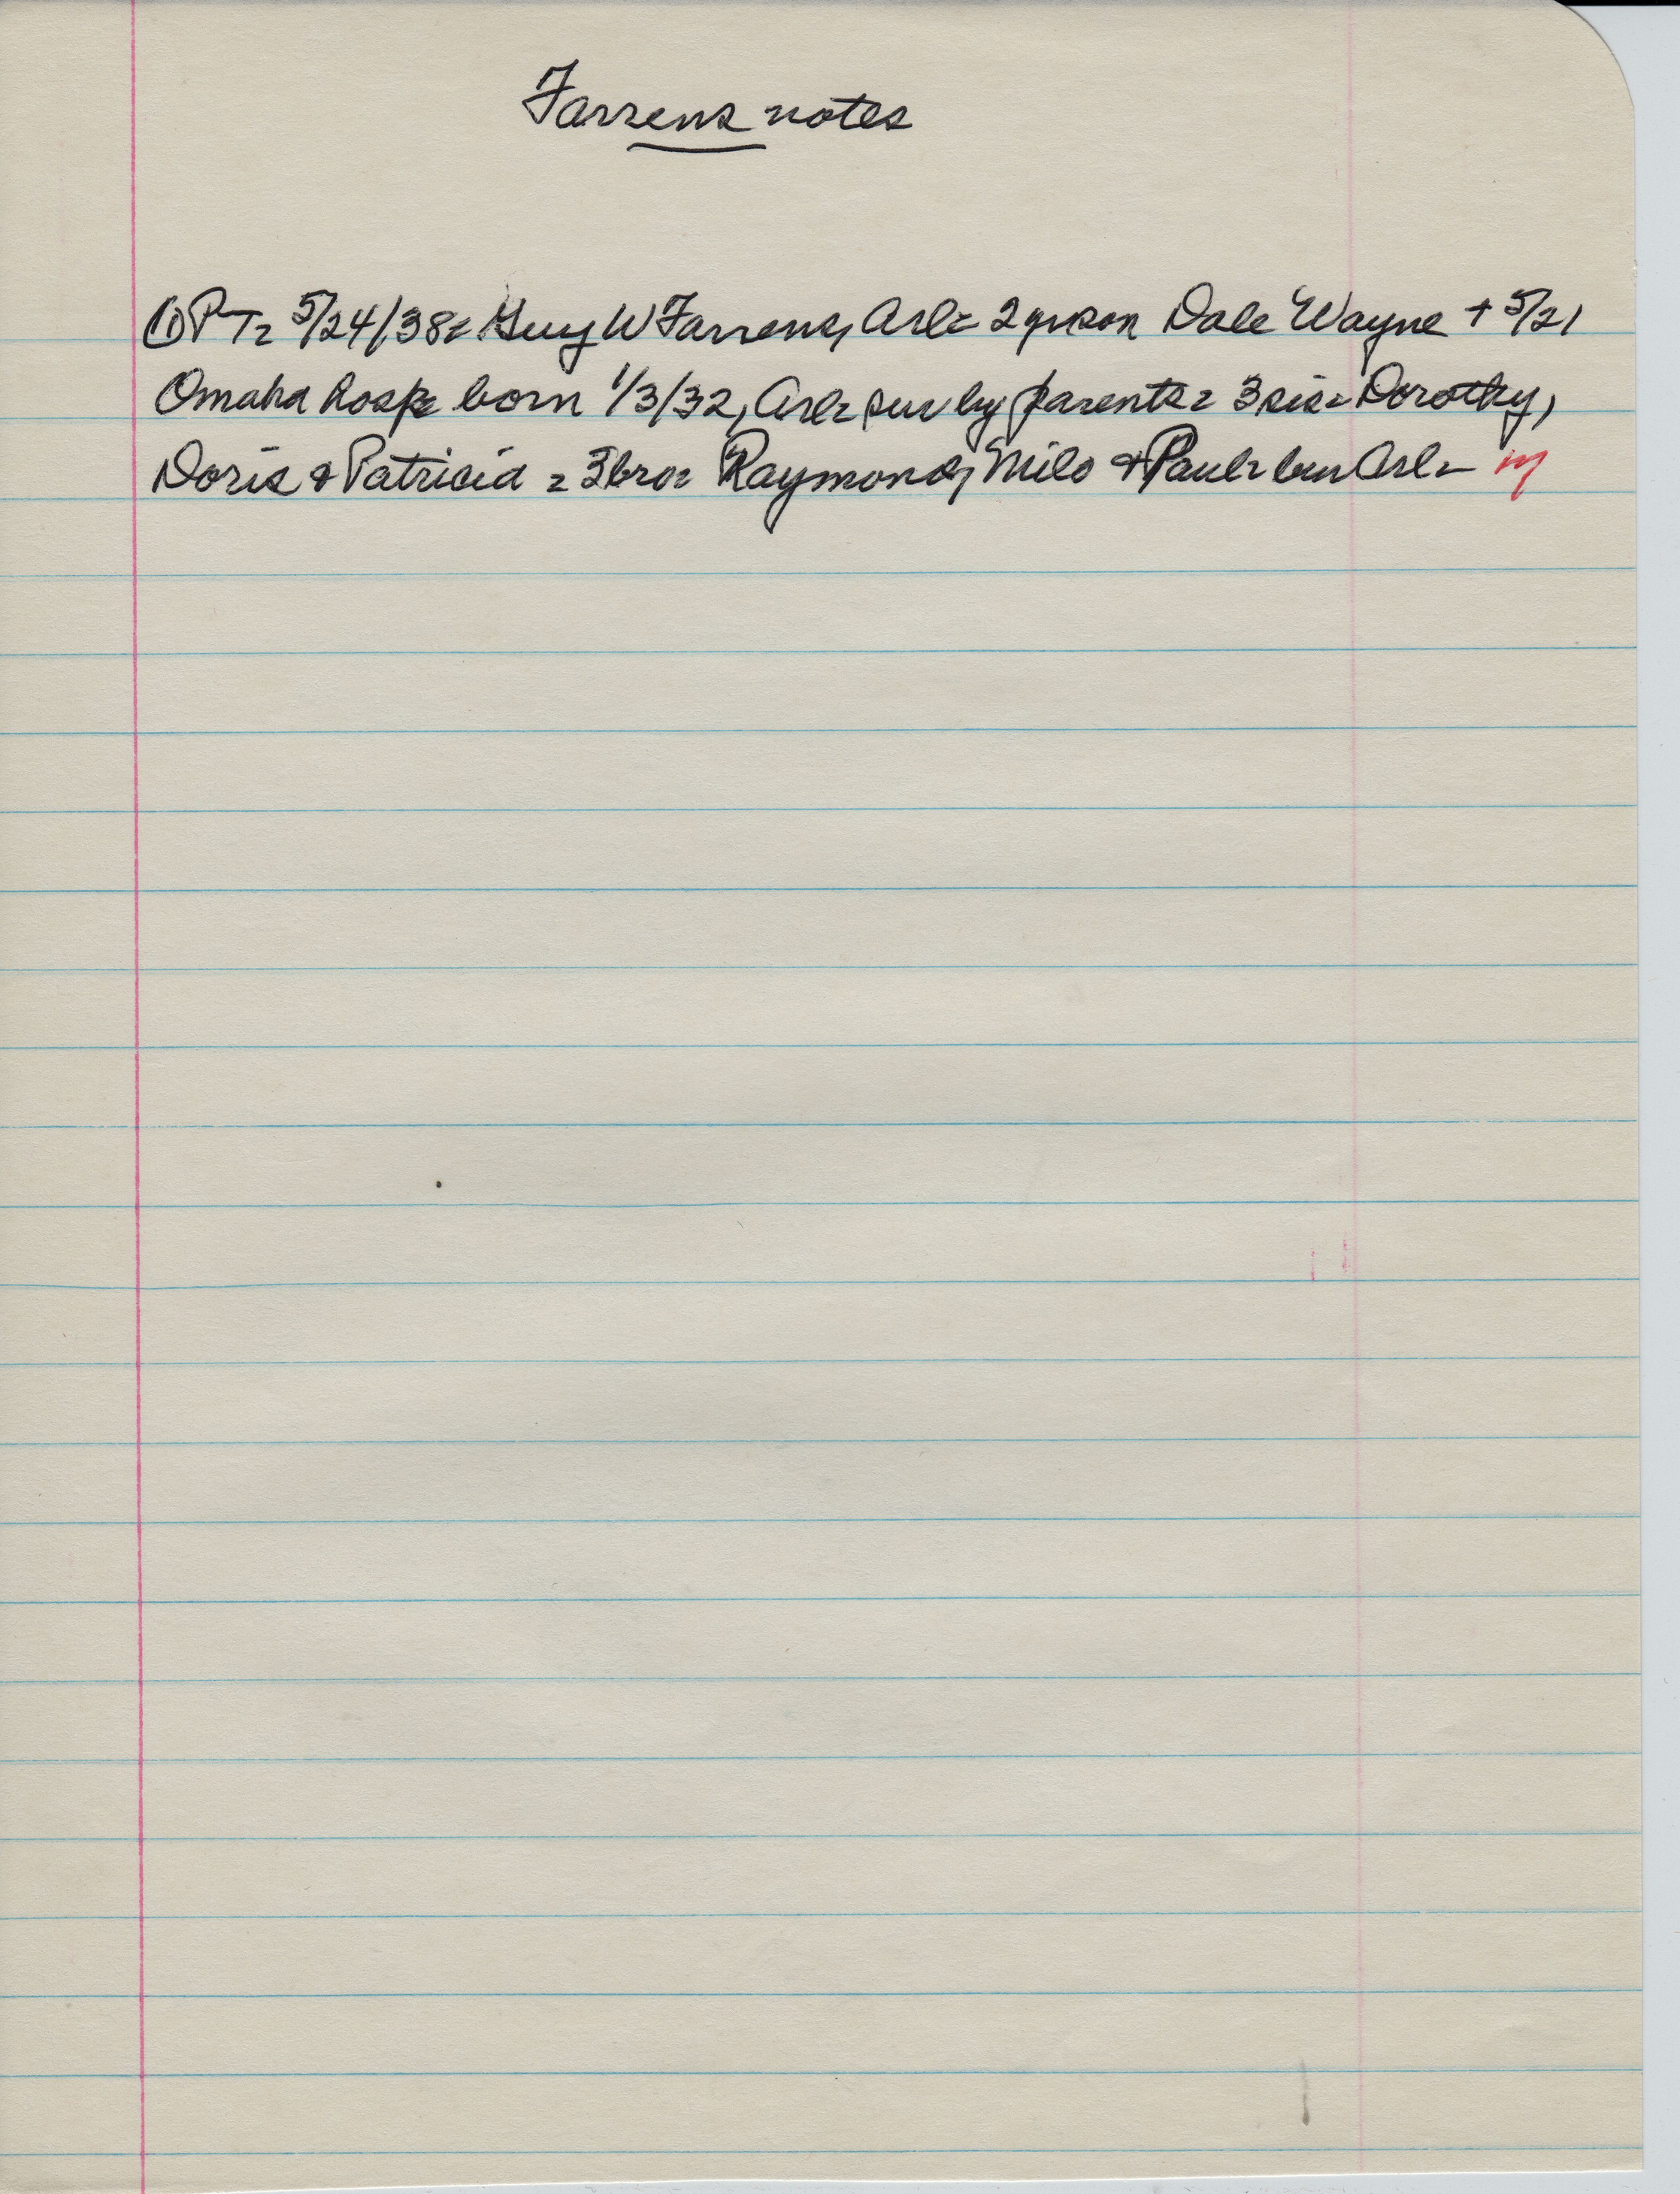 Farrens notes
① PT= 5/24/38= Guy W Farrens, Arl= 2 yr son Dale Wayne + 5/21
Omaha hosp= born 1/3/32, Arl= sur by parents= 3 sis= Dorothy,
Doris & Patricia = 3 bro= Raymond, Milo & Paul= bur Arl=